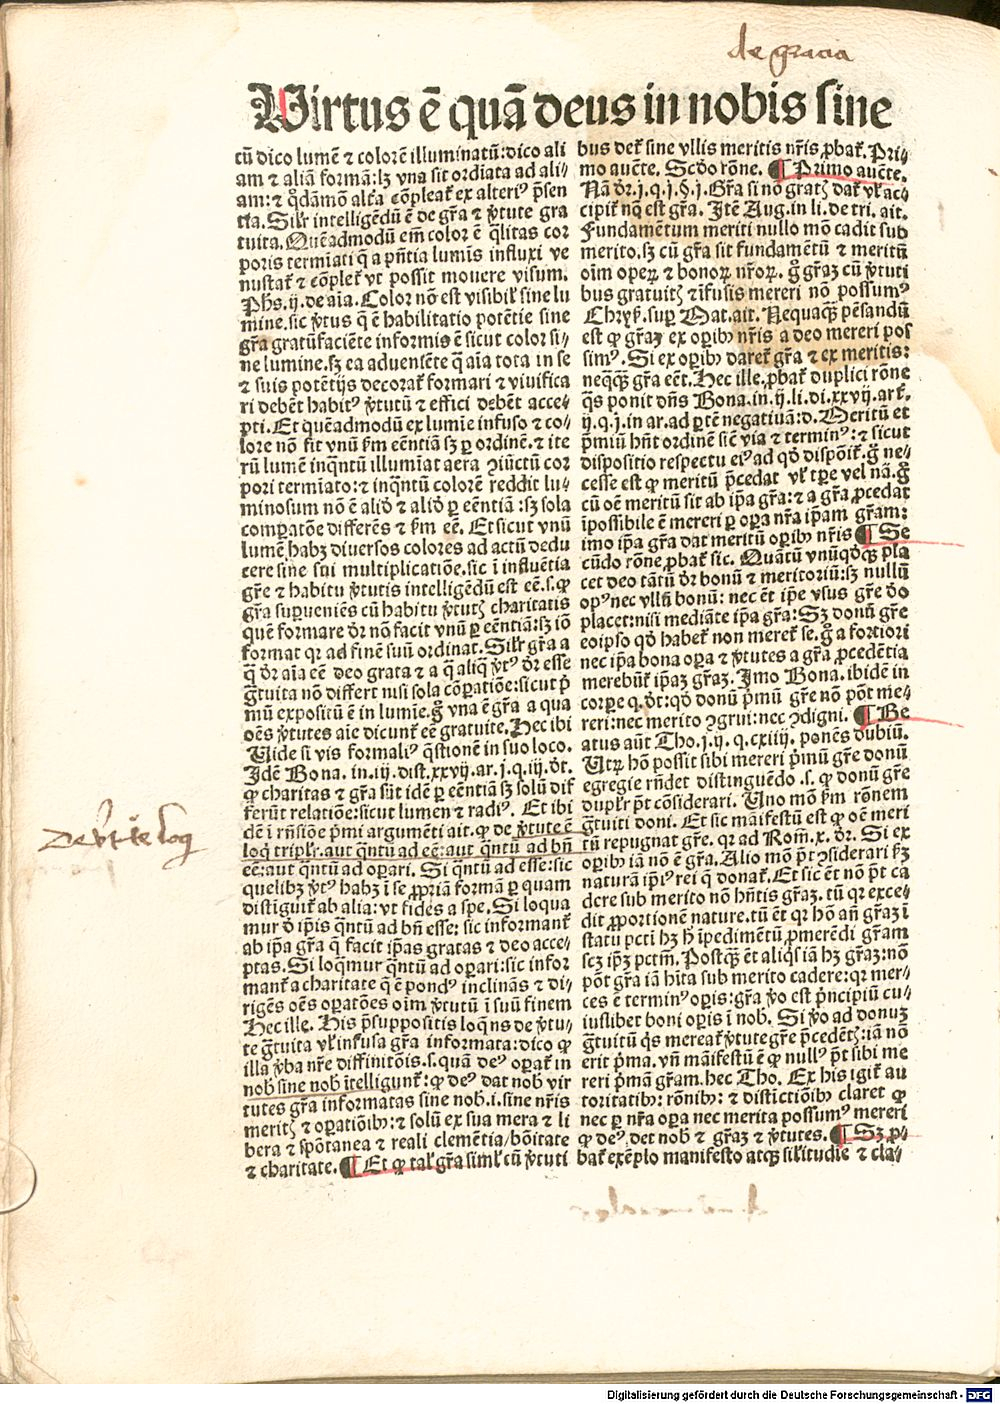 de gracia
Virtus ē quā deus in nobis sine
cū dico lumē ⁊ colorē illuminatū: dico ali
am ⁊ aliā formā: lꝫ vna sit ordiata ad ali/
am: ⁊ qd̓dāmō alt̓a cōpleat̉ ex alteriꝰ p̄sen
tia. Silr̄ intelligēdū ē de gr̄a ⁊ v̓tute gra
tuita. Quēadmodū em̄ color ē q̄litas cor
poris termiati q̄ a pn̄tia lumīs influxi ve
nustat̉ ⁊ cōplet̉ vt possit mouere visum.
Ph̄s. ij. de aīa. Color nō est visibil̓ sine lu
mine. sic v̓tus q̄ ē habilitatio potētie sine
gr̄a gratūfaciēte informis ē sicut color si/
ne lumine. sꝫ ea aduensēte q̄ aīa tota in se
⁊ suis potētijs decorat̉ formari ⁊ viuifica
ri debēt habitꝰ v̓tutū ⁊ effici debēt acce/
pti. Et quēadmodū ex lumīe infuso ⁊ co/
lore nō fit vnū ẜm eēntiā sꝫ ꝑ ordinē. ⁊ ite
rū lumē inq̄ntū illumīat aera ꝯiūctū cor
pori termīato: ⁊ inq̄ntū colorē reddit lu/
minosum nō ē aliđ ⁊ aliđ ꝑ eēntiā: sꝫ sola
comparatōe differēs ⁊ ẜm eē. Et sicut vnū
lumē habꝫ diuersos colores ad actū dedu
cere sine sui multiplicatiōe. sic i influētia
gr̄e ⁊ habitu v̓tutis intelligēdū est eē. s. ꝙ
gr̄a suꝑueniēs cū habitu v̓tutꝫ charitatis
quē formare dr̄ nō facit vnū ꝑ eēntiā: sꝫ iō
format qr ad finē suū ordinat. Silr̄ gr̄a a
q̄ dr̄ aīa eē deo grata ⁊ a q̄ aliq̄ v̓tꝰ dr̄ esse
gͣtuita nō differt nisi sola cōꝑatiōe: sicut p̄
mū expositū ē in lumīe. gͦ vna ē gr̄a a qua
oēs v̓tutes aīe dicunt̉ eē gratuite. Hec ibi
Uide si vis formaliꝰ q̄stionē in suo loco.
Idē Bona. in. iij. dist. xxvij. ar. j. q. iij. dt̄.
ꝙ charitas ⁊ gr̄a sūt idē ꝑ eēntiā sꝫ solū dif
ferūt relatiōe: sicut lumen ⁊ radiꝰ. Et ibi
dē i rn̄siōe p̄mi argumēti ait. ꝙ de v̓tute ē
loq̄ triplr̄. aut q̄ntū ad eē: aut q̄ntū ad bn̄
eē: aut q̄ntū ad oꝑari. Si q̄ntū ad esse: sic
quelibꝫ v̓tꝰ habꝫ i se ꝓpriā formā ꝑ quam
distiguit̉ ab alia: vt fides a spe. Si loqua
mur đ ip̄is q̄ntū ad bn̄ esse: sic informant̉
ab ip̄a gr̄a q̄ facit ip̄as gratas ⁊ deo acce/
ptas. Si loq̄mur q̄ntū ad oꝑari: sic infor
mant̉ a charitate q̄ ē pondꝰ inclinās ⁊ di/
rigēs oēs oꝑatōes oīm v̓tutū i suū finem
Hec ille. His p̄suppositis loq̄ns de v̓tu/
te gͣtuita vl̓ infusa gr̄a informata: dico ꝙ
illa v̓ba nr̄e diffinitōis. s. quā deꝰ oꝑat̉ in
nob̄ sine nob̄ ītelligunt̉: ꝙ deꝰ dat nob̄ vir
tutes gr̄a informatas sine nob̄. i. sine nr̄is
meritꝫ ⁊ oꝑatiōibꝰ: ⁊ solū ex sua mera ⁊ li
bera ⁊ spōtanea ⁊ reali clemētia/ bōitate
⁊ charitate. ¶ Et ꝙ tal̓ gr̄a siml̓ cū v̓tuti
bus det̉ sine vllis meritis nr̄is ꝓbat̉. Pri/
mo auc̄te. Scđo rōne. ¶ Primo auc̄te.
Nā dr̄. j. q. j. §. j. Gr̄a si nō gratꝫ dat̉ vl̓ ac/
cipit̉ nō est gr̄a. Itē Aug. in li. de tri. ait.
Fundamētum meriti nullo mō cadit sub
merito. sꝫ cū gr̄a sit fundamētū ⁊ meritū
oīm operꝝ ⁊ bonoꝝ nr̄oꝝ. gͦ gr̄aꝫ cū v̓tuti
bus gratuitꝫ ⁊ īfusis mereri nō possumꝰ
Chryß. suꝑ Mat. ait. Nequaq̄ꝫ pēsandū
est ꝙ gr̄aꝫ ex oꝑibꝰ nr̄is a deo mereri pos
simꝰ. Si ex oꝑibꝰ daret̉ gr̄a ⁊ ex meritis:
neq̄q̄ꝫ gr̄a eēt. Hec ille. ꝓbat̉ duplici rōne
q̄s ponit dn̄s Bona. in. ij. li. di. xxvij. art̉.
ij. q. j. in ar. ad ꝑtē negatiuā: đ. Meritū et
p̄miū hn̄t ordinē sic̄ via ⁊ terminꝰ: ⁊ sicut
dispositio respectu eiꝰ ad qđ dispōit̉. gͦ ne/
cesse est ꝙ meritū p̄cedat vl̓ tꝑe vel nā. gͦ
cū oē meritū sit ab ip̄a gr̄a: ⁊ a gr̄a ꝓcedat
ipossibile ē mereri ꝑ oꝑa nr̄a ip̄am gr̄am:
imo ip̄a gr̄a dat meritū oꝑibꝰ nr̄is ¶ Se
cūdo rōne ꝓbat̉ sic. Quātū vnūqđqꝫ pla
cet deo tātū dr̄ bonū ⁊ meritoriū: sꝫ nullū
opꝰ nec vllū bonū: nec ēt ip̄e vsus gr̄e đo
placet: nisi mediāte ip̄a gr̄a: Sꝫ donū gr̄e
eoipso qđ habet̉ non meret̉ se. gͦ a fortiori
nec ip̄a bona oꝑa ⁊ v̓tutes a gr̄a ꝓcedētia
merebūt̉ ip̄aꝫ gr̄aꝫ. Imo Bona. ibidē in
corꝑe q. dt̄: qđ donū p̄mū gr̄e nō pōt me/
reri: nec merito ꝯgrui: nec ꝯdigni. ¶ Be
atus aūt Tho. j. ij. q. cxiiij. ponēs dubiū.
Utꝝ hō possit sibi mereri p̄mū gr̄e donū
egregie rn̄det distinguēdo. s. ꝙ donū gr̄e
duplr̄ pt̄ cōsiderari. Uno mō ẜm rōnem
gͣtuiti doni. Et sic manifestū est ꝙ oē meri
tū repugnat gr̄e. qr ad Rom̄. x. dr̄. Si ex
oꝑibꝰ iā nō ē gr̄a. Alio mō pt̄ ꝯsiderari ẜꝫ
naturā ip̄iꝰ rei q̄ donat̉. Et sic ēt nō pt̄ ca
dere sub merito nō hn̄tis gr̄aꝫ. tū qr exce/
dit ꝓportionē nature. tū ēt qr hō an̄ gr̄aꝫ ī
statu pcti hꝫ h̄ īpedimētū ꝓmerēdi gr̄am
scꝫ ip̄ꝫ pctm̄. Postq̄ꝫ ēt aliq̄s iā hꝫ gr̄aꝫ: nō
pōt gr̄a iā hita sub merito cadere: qr mer/
ces ē terminꝰ oꝑis: gr̄a v̓o est p̄ncipiū cu/
iuslibet boni oꝑis i nob̄. Si v̓o ad donuꝫ
gͣtuitū q̄s mereat̉ v̓tute gr̄e p̄cedētꝫ: iā nō
erit p̄ma. vn̄ manifestū ē ꝙ nullꝰ pt̄ sibi me
reri p̄mā gr̄am. hec Tho. Ex his igit̉ au
toritatibꝰ: rōnibꝰ: ⁊ distīctiōibꝰ claret ꝙ
nec ꝑ nr̄a oꝑa nec merita possumꝰ mereri
ꝙ deꝰ det nob̄ ⁊ gr̄aꝫ ⁊ v̓tutes. ¶ Sꝫ ꝓ/
bat̉ exēplo manifesto atqꝫ sil̓itudīe ⁊ cla/
Digitalisierung gefördert durch die Deutsche Forschungsgemeinschaft - DFG